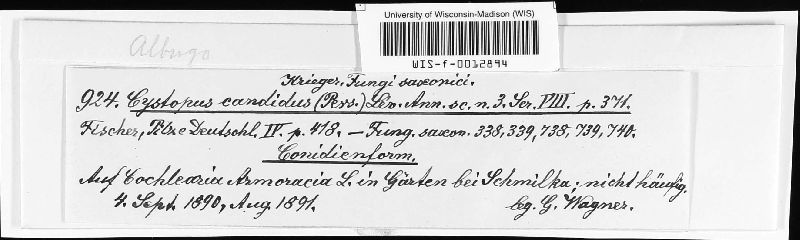 University of Wisconsin-Madison (WIS)
WIS-f-0012894
Albugo
Krieger. Fungi saxonici.
924. Cystopus candidus (Pers.) Lév. Ann. sc. n. 3. Ser. VIII. p. 371.
Fischer, Pilze Deutschl. IV. p. 418. — Fung. saxon. 338, 339, 738, 739, 740.
Conidienform.
Auf Cochlearia Armoracia L. in Gärten bei Schmilka; nicht häufig.
4. Sept. 1890, Aug. 1891.
leg. G. Wagner.